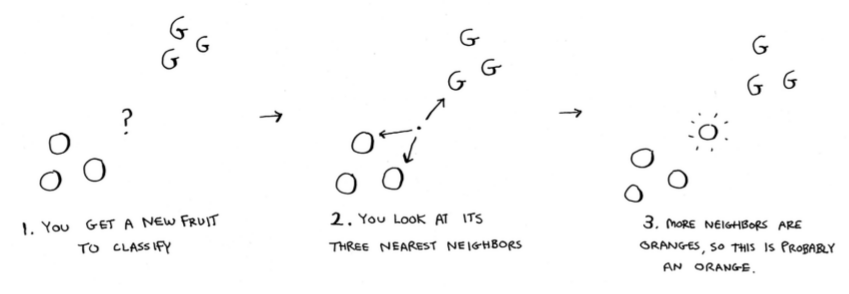 G
G
G
?
1. YOU GET A NEW FRUIT
TO CLASSIFY
→
G
G
G
2. YOU LOOK AT ITS
THREE NEAREST NEIGHBORS
→
G
G
G
3. MORE NEIGHBORS ARE
ORANGES, SO THIS IS PROBABLY
AN ORANGE.